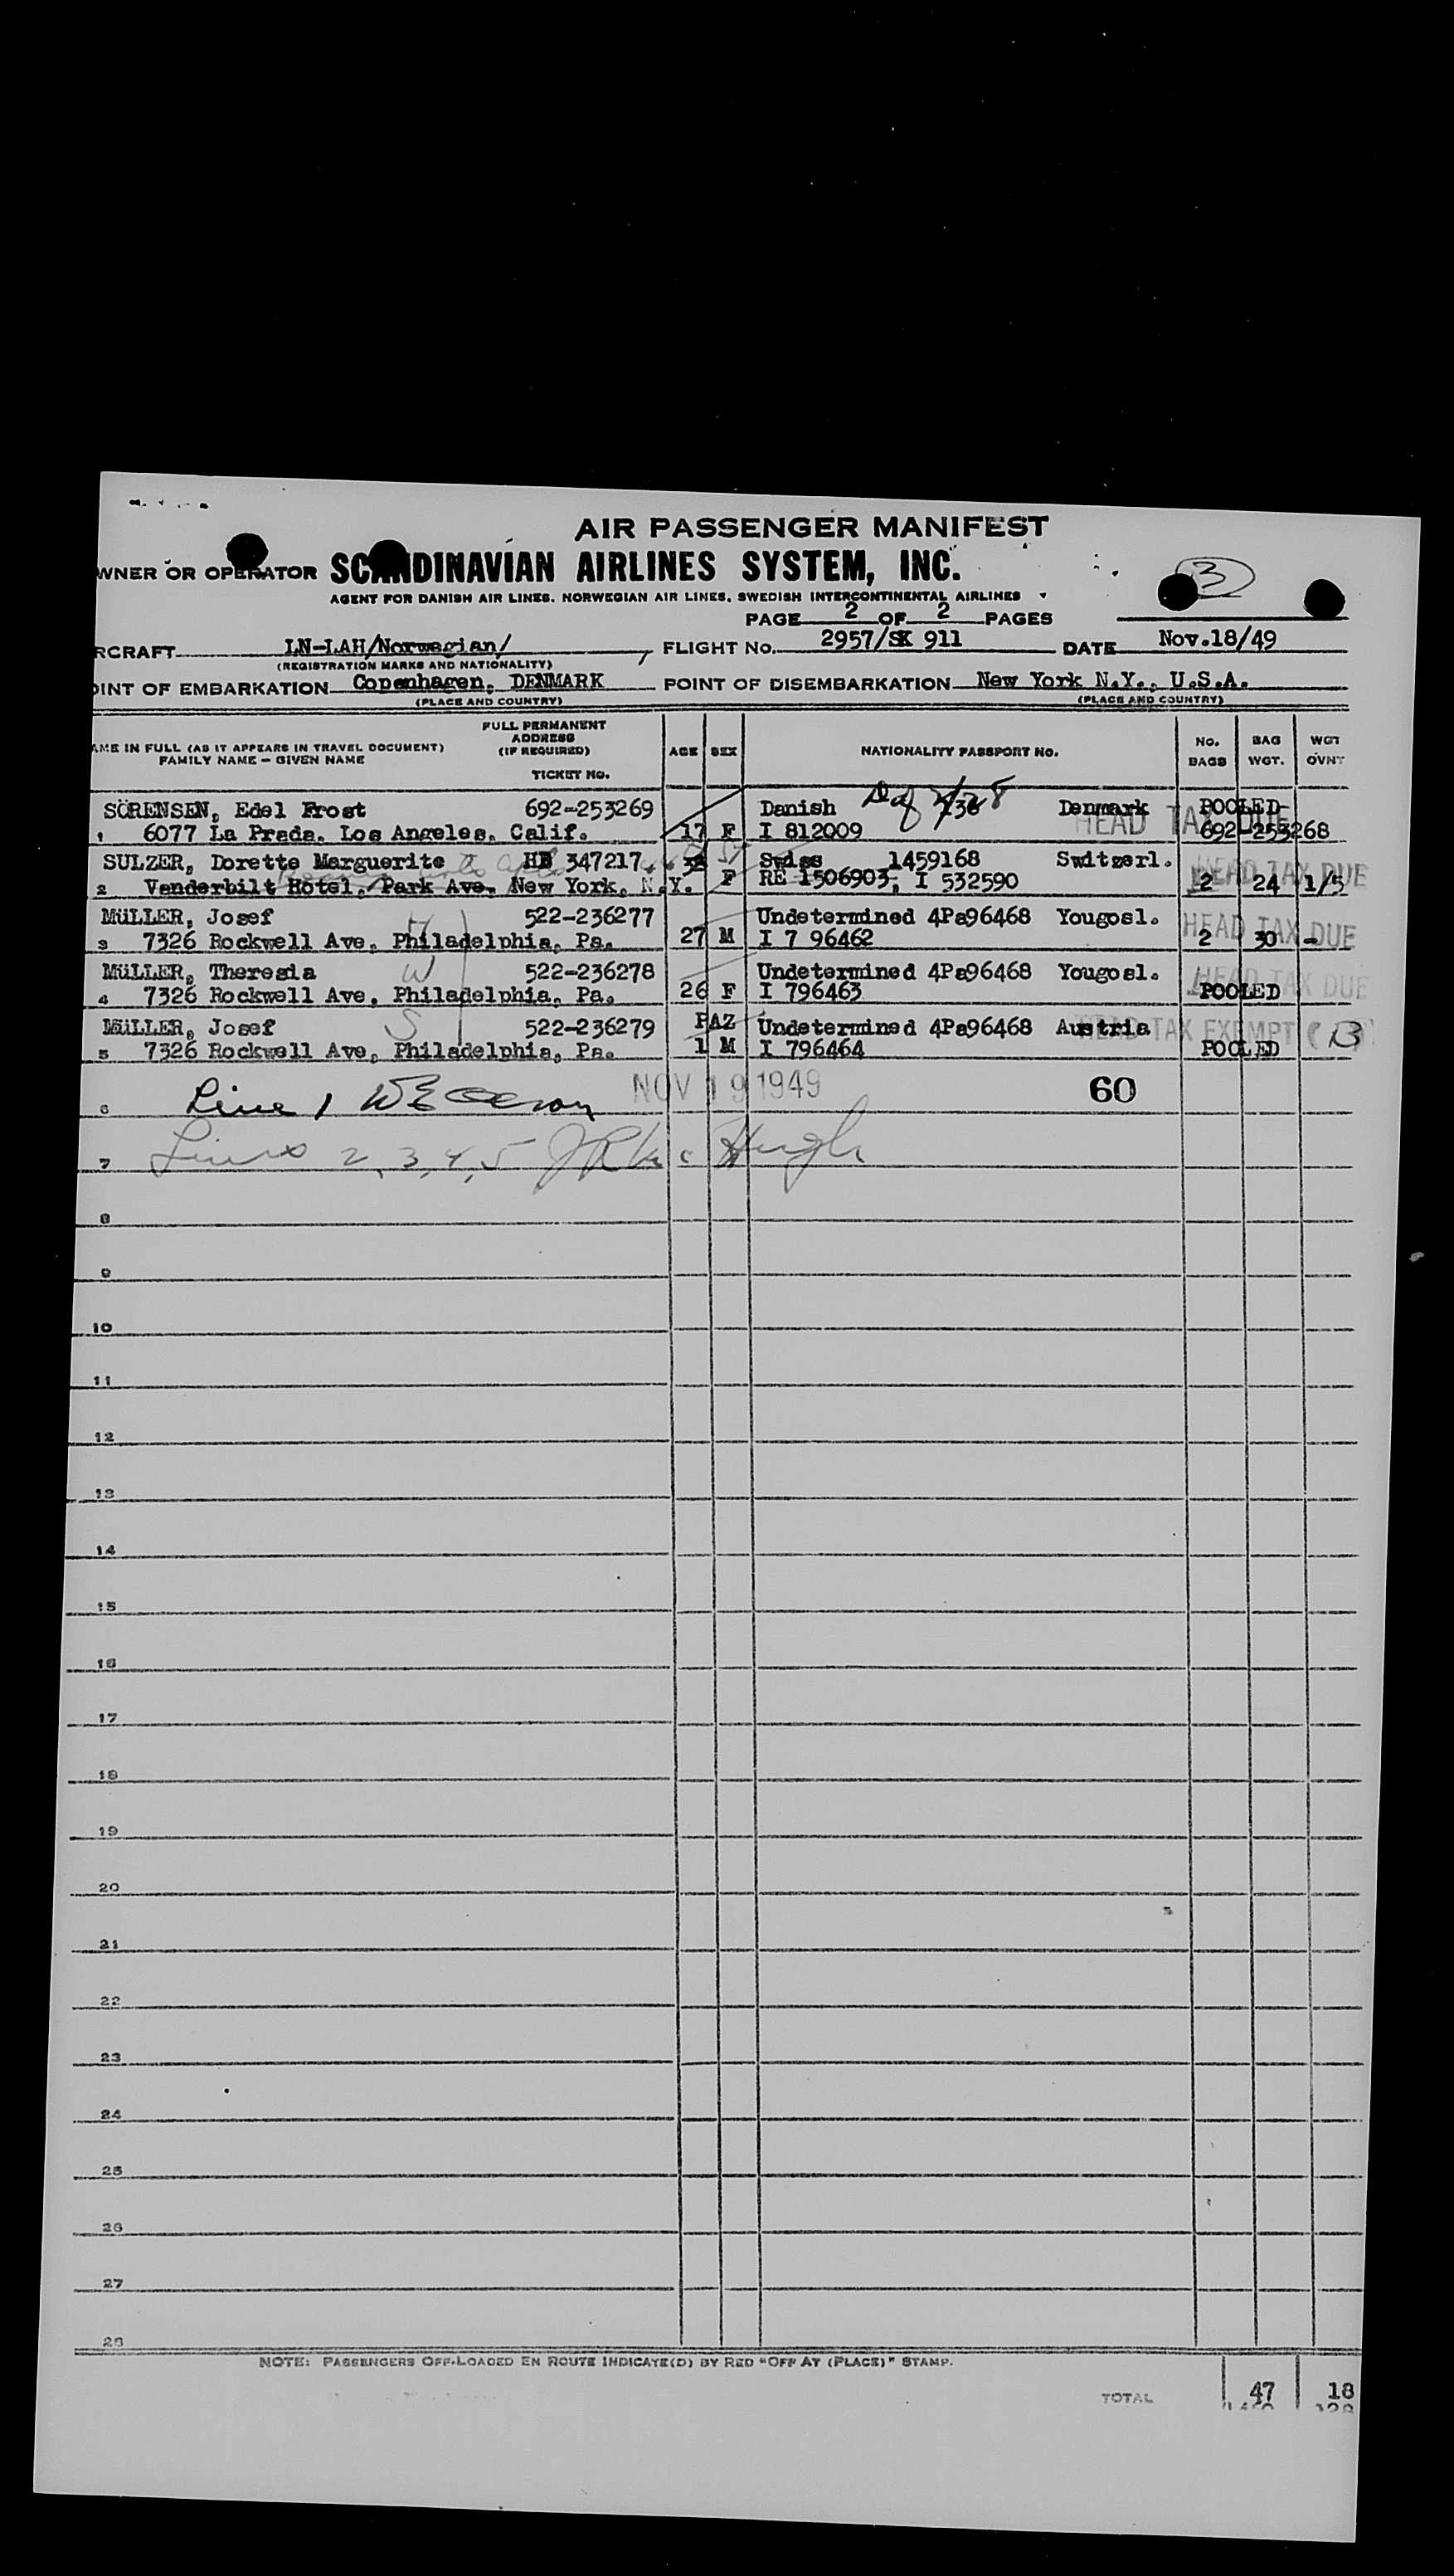 AIR PASSENGER MANIFEST
WNER OR OPERATOR SCANDINAVIAN AIRLINES SYSTEM, INC.
AGENT FOR DANISH AIR LINES. NORWEGIAN AIR LINES. SWEDISH INTERCONTINENTAL AIRLINES
3
PAGE 2 OF 2 PAGES
RCRAFT LN-LAH/Norwegian/ FLIGHT NO. 2957/SK 911 DATE Nov.18/49
(REGISTRATION MARKS AND NATIONALITY)
OINT OF EMBARKATION Copenhagen, DENMARK POINT OF DISEMBARKATION New York N.Y., U.S.A.
(PLACE AND COUNTRY) (PLACE AND COUNTRY)
AME IN FULL (AS IT APPEARS IN TRAVEL DOCUMENT) FAMILY NAME – GIVEN NAME
FULL PERMANENT ADDRESS (IF REQUIRED) TICKET NO.
AGE SEX NATIONALITY PASSPORT NO. NO. BAGS BAG WGT. WGT OVNT
SÖRENSEN, Edel Frost 692-253269 Danish Denmark POOLED-
1 6077 La Prada, Los Angeles, Calif. 17 F I 812009 HEAD TAX DUE 692-253268
SULZER, Dorette Marguerite HB 347217 Swiss 1459168 Switzerl. HEAD TAX DUE
2 Vanderbilt Hotel, Park Ave, New York, N.Y. F RE 1506903, I 532590 2 24 1/5
MüLLER, Josef H 522-236277 Undetermined 4Pa96468 Yougosl. HEAD TAX DUE
3 7326 Rockwell Ave, Philadelphia, Pa. 27 M I 7 96462 2 30 -
MüLLER, Theresia W 522-236278 Undetermined 4Pa96468 Yougosl. HEAD TAX DUE
4 7326 Rockwell Ave, Philadelphia, Pa. 26 F I 796463 POOLED
MüLLER, Josef S 522-236279 PAZ Undetermined 4Pa96468 Austria HEAD TAX EXEMPT
5 7326 Rockwell Ave, Philadelphia, Pa. 1 M I 796464 POOLED
6 Line 1 NOV 19 1949 60
7 Lines 2, 3, 4, 5
8
9
10
11
12
13
14
15
16
17
18
19
20
21
22
23
24
25
26
27
28
NOTE: PASSENGERS OFF-LOADED EN ROUTE INDICATE(D) BY RED "OFF AT (PLACE)" STAMP.
TOTAL 47 18